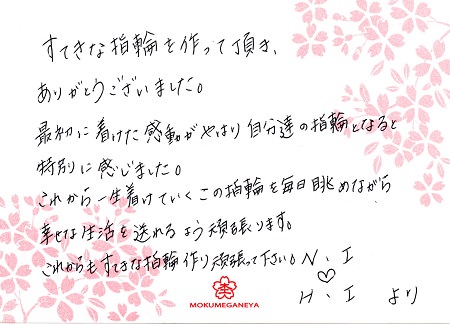 すてきな指輪を作って頂き、
ありがとうございました。
最初に着けた感動がやはり自分達の指輪となると
特別に感じました。
これから一生着けていくこの指輪を毎日眺めながら
幸せな生活を送れるよう頑張ります。
これからもすてきな指輪作り頑張って下さい。N・I
♡
H・I より
MOKUMEGANEYA